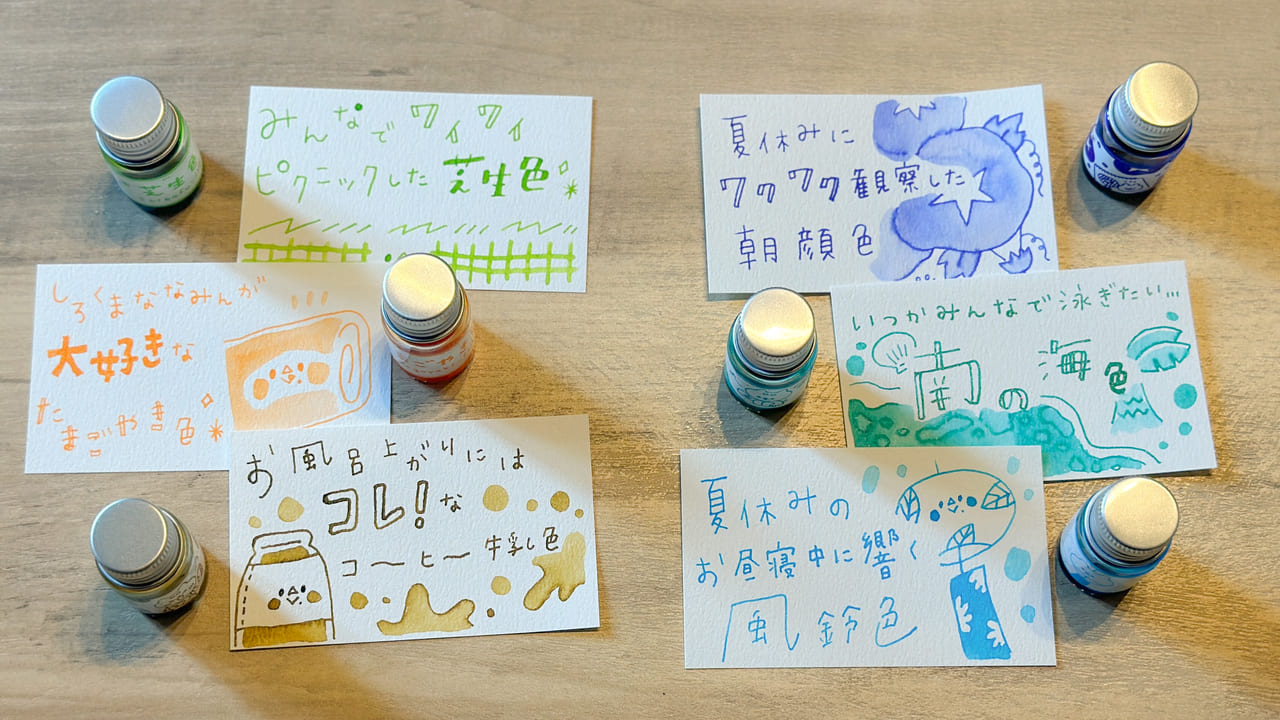 みんなでワイワイ
ピクニックした芝生色
しろくまななみんが
大好きな
たまごやき色
お風呂上がりには
コレ!な
コーヒー牛乳し色
夏休みに
ワクワク観察した
朝顔色
いつかみんなで泳ぎたい…
南の海色
夏休みの
お昼寝中に響く
風鈴色
芝生色